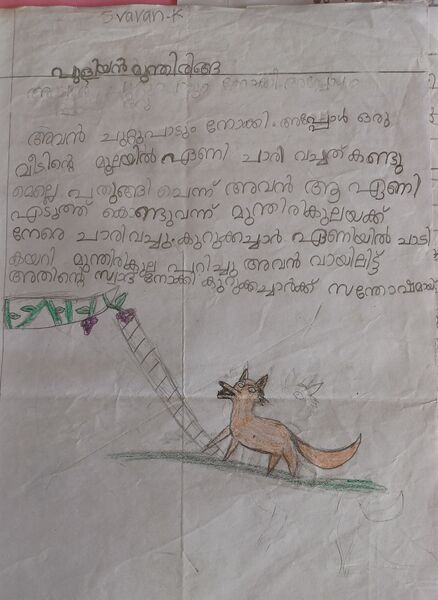 Svavan-K
പുളിയൻ മുന്തിരിങ്ങ
അവൻ ചുറ്റുപാടും നോക്കി. അപ്പോൾ ഒരു
വീടിന്റെ മൂലയിൽ ഏണി ചാരി വച്ചത് കണ്ടു
മെല്ലെ പതുങ്ങി ചെന്ന് അവൻ ആ ഏണി
എടുത്ത് കൊണ്ടുവന്ന് മുന്തിരികുലയക്ക്
നേരെ ചാരിവച്ചു. കുറുക്കച്ചാർ ഏണിയിൽ ചാടി
കയറി മുന്തിരികുല പറിച്ചു അവൻ വായിലിട്ട്
അതിന്റെ സ്വാദ് നോക്കി കുറുക്കച്ചാർക്ക് സന്തോഷമായി